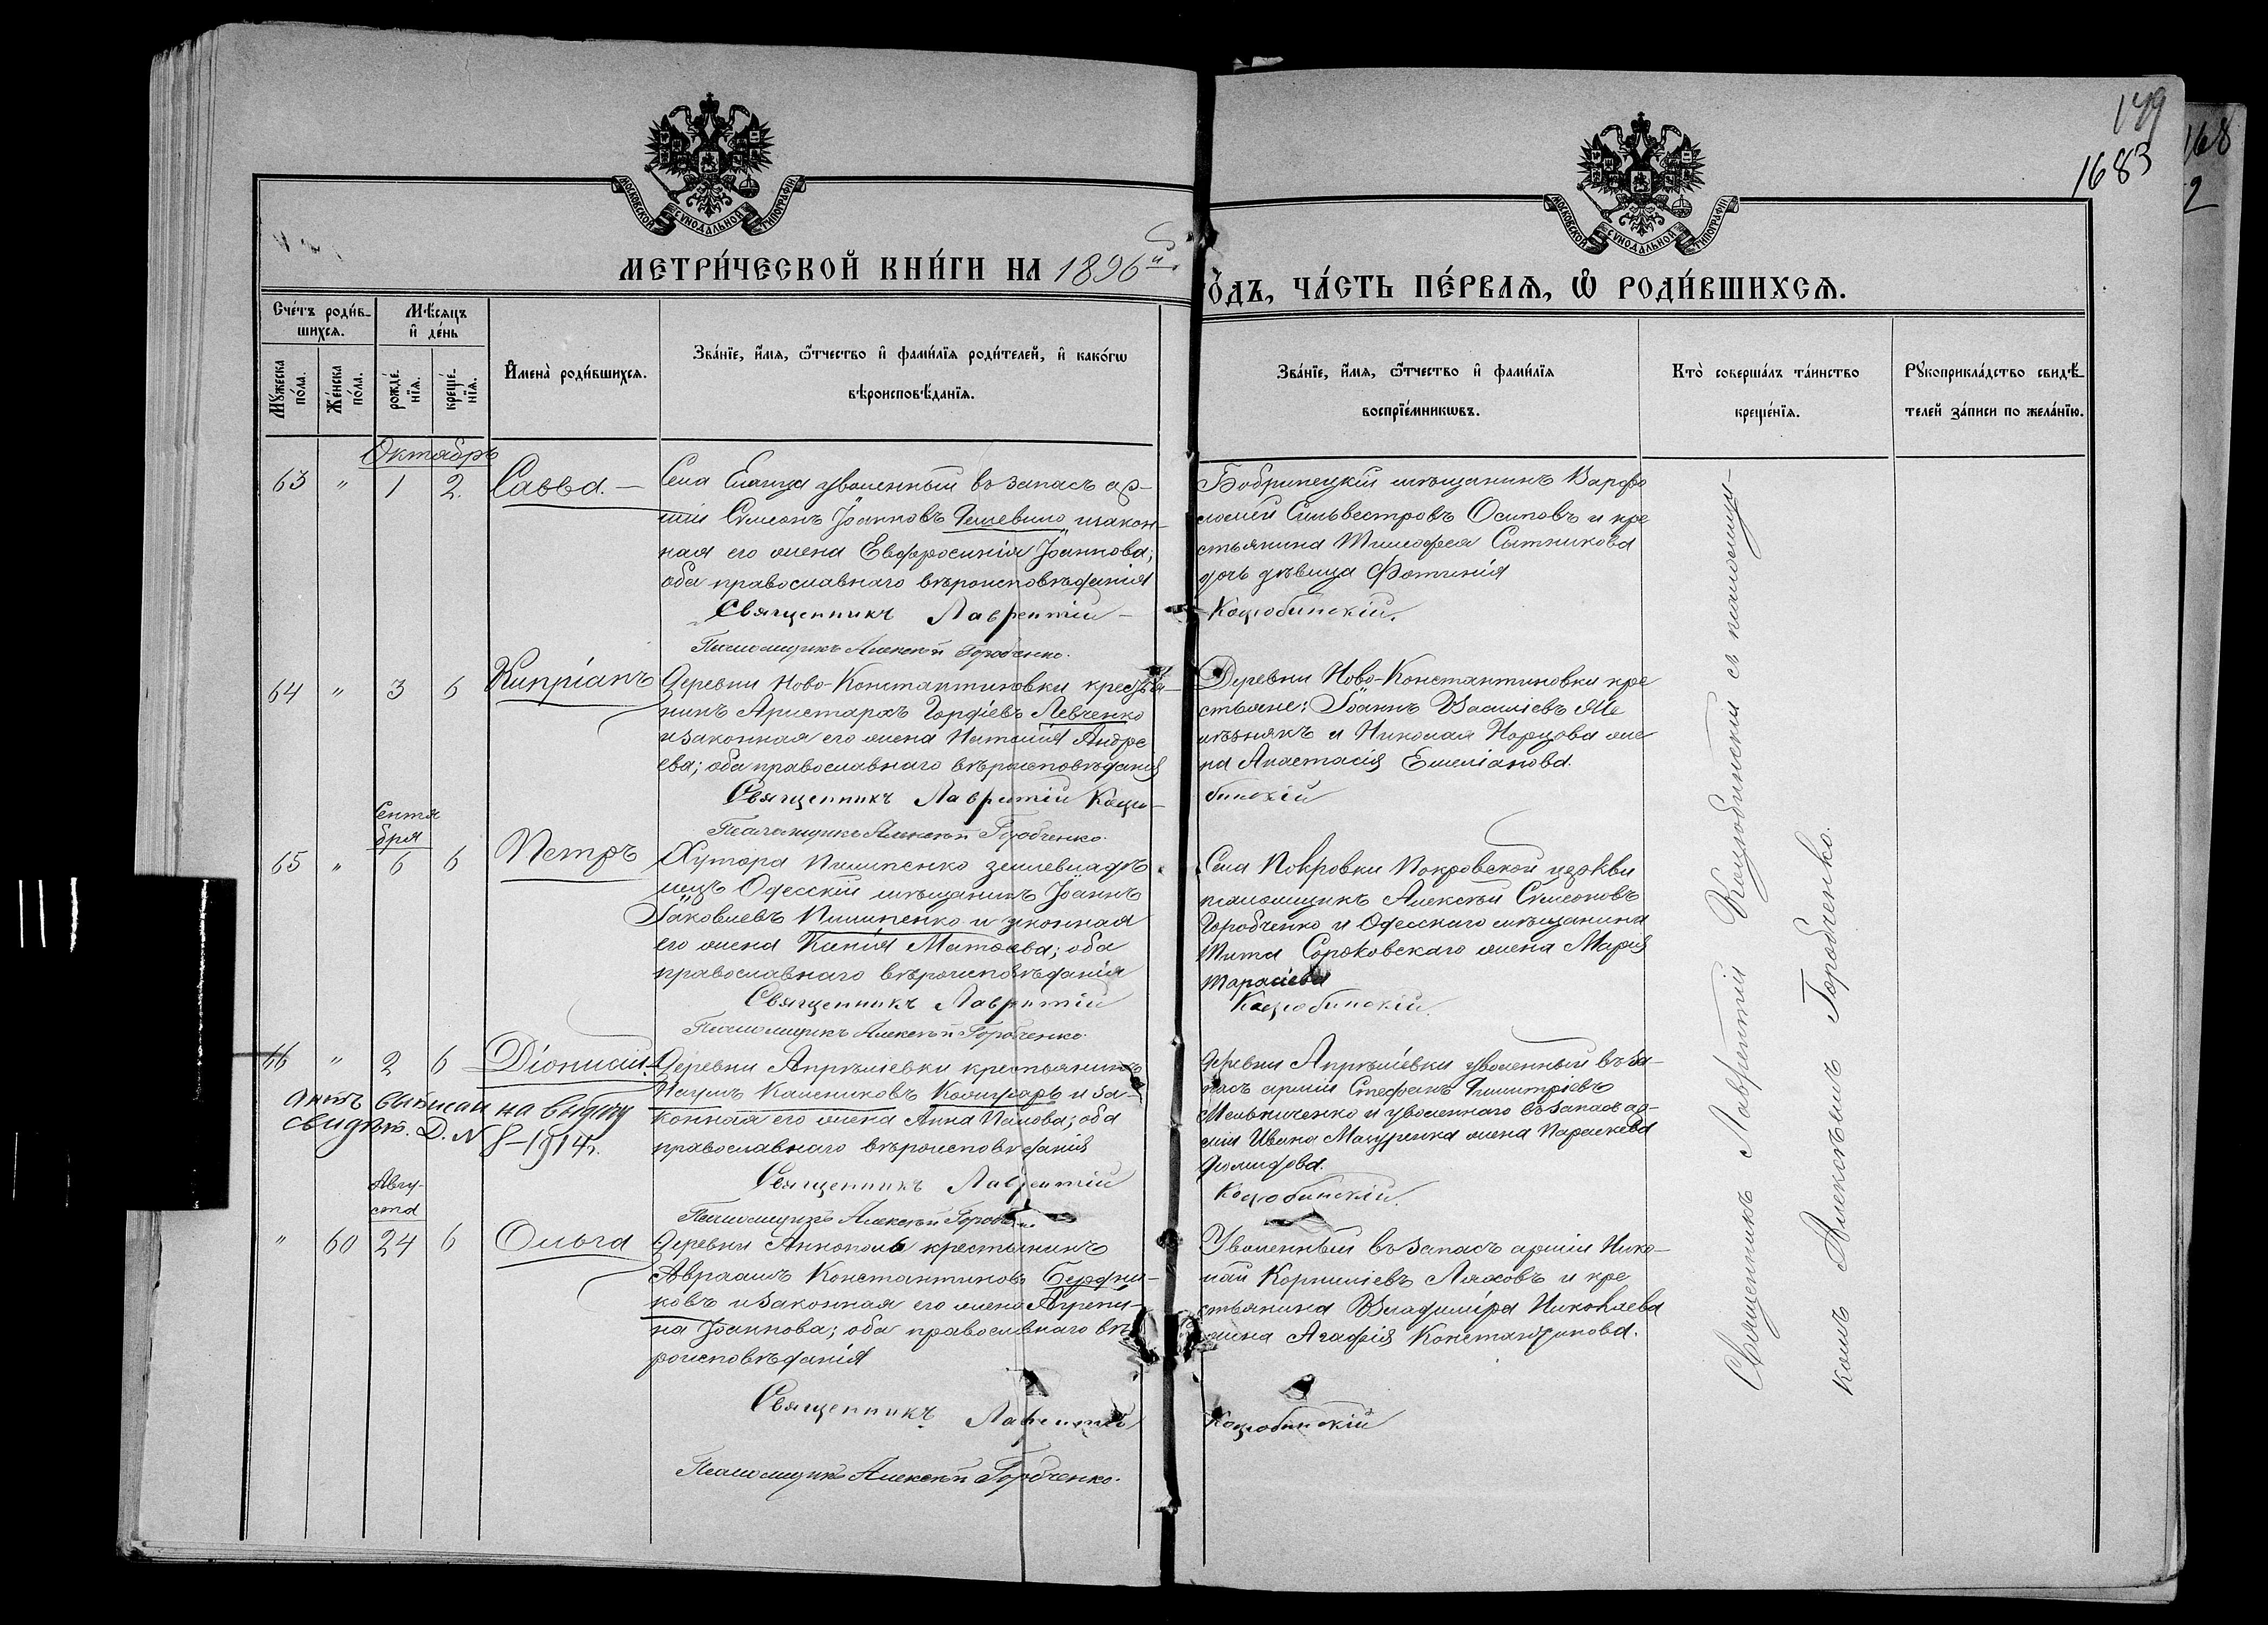 179
1683
168
2
МОСКОВСКОЙ СѴНОДАЛЬНОЙ ТИПОГРАФІИ
МОСКОВСКОЙ СѴНОДАЛЬНОЙ ТИПОГРАФІИ
МЕТРИ́ЧЕСКОЙ КНИ́ГИ НА 1896й
ГО́ДЪ, ЧА́СТЬ ПЕ́РВАѦ, Ѡ҆ РОДИ́ВШИХСѦ.
Сче́тъ роди́в-
шихсѧ.
Мꙋ́жеска по́ла.
Же́нска по́ла.
Мѣ́сѧцъ
и҆ де́нь
рожде́нїѧ.
креще́нїѧ.
И҆мена̀ роди́вшихсѧ.
Зва́нїе, и҆́мѧ, ѻ҆́тчество и҆ фами́лїѧ роди́телей, и҆ како́гѡ
вѣроисповѣ́данїѧ.
Зва́нїе, и҆́мѧ, ѻ҆́тчество и҆ фами́лїѧ
воспрїе́мникѡвъ.
Кто̀ соверша́лъ та́инство
креще́нїѧ.
Рꙋкоприкла́дство свидѣ́-
телей за́писи по жела́нїю.
Октябрь
63 " 1 2. Савва.
Села Еланца уволенный въ запасъ ар-
міи Симеонъ Іоанновъ и закон-
ная его жена Евфросинія Іоаннова;
оба православнаго вѣроисповѣданія
Священникъ Лаврентій
Псаломщикъ Алексѣй Горобченко.
Бобринецкій мѣщанинъ Варфо
ломей Сильвестровъ Осиповъ и кре
стьянина Тимофея Сытникова
дочь дѣвица Фотинія
Коцюбинскій.
64 " 3 6 Кипріанъ
Деревни Ново-Константиновки крестья-
нинъ Аристархъ Гордіевъ Левченко
и законная его жена Наталія Андре
ева; оба православнаго вѣроисповѣданія
Священникъ Лаврентій Коцю-
Псаломщикъ Алексѣй Горобченко.
Деревни Ново-Константиновки кре
стьяне: Іоаннъ Василіевъ Ме
льнякъ и Николая Норцова же
на Анастасія Емеліанова.
бинскій
Сентя
бря
65 " 6 6 Петръ
Хутора Пилипенко землевладѣ
лецъ Одесскій мѣщанинъ Іоаннъ
Іаковлевъ Пилипенко и зконная
его жена Ксенія Матѳеева; оба
православнаго вѣроисповѣданія
Священникъ Лаврентій
Псаломщикъ Алексѣй Горобченко.
Села Покровки Покровской церкви
псаломщикъ Алексѣй Симеоновъ
Горобченко и Одесскаго мѣщанина
Тита Сороковскаго жена Марія
Тарасіева
Коцюбинскій.
66 " 2 6 Діонисій.
Деревни Апрѣлевки крестьянинъ
Наумъ Калениковъ и за-
конная его жена Анна Павлова; оба
православнаго вѣроисповѣданія
Священникъ Лаврентій
Псаломщикъ Алексѣй Горобченко.
Актъ выписан на выдачу
свидѣт. Д. N 8-1914г.
Деревни Апрѣлевки уволенный въ за-
пасъ арміи Стефанъ Димитріевъ
Мельниченко и уволеннаго въ запасъ ар-
міи Ивана Мазуренка жена Параскева
Діомидова.
Коцюбинскій.
Авгу-
ста
" 60 24 6 Ольга
Деревни Аннополь крестьянинъ
Авраамъ Константиновъ Бердни-
ковъ и законная его жена Агрепи-
на Іоаннова; оба православнаго вѣ
роисповѣданія
Священникъ Лаврентій
Псаломщикъ Алексѣй Горобченко.
Уволенный въ запасъ арміи Нико-
лай Корниліевъ Ляховъ и кре
стьянина Владиміра Николаева
жина Агафія Константинова.
Коцюбинскій
Священникъ Лаврентій Коцюбинскій съ псаломщи-
комъ Алексѣемъ Горобченко.